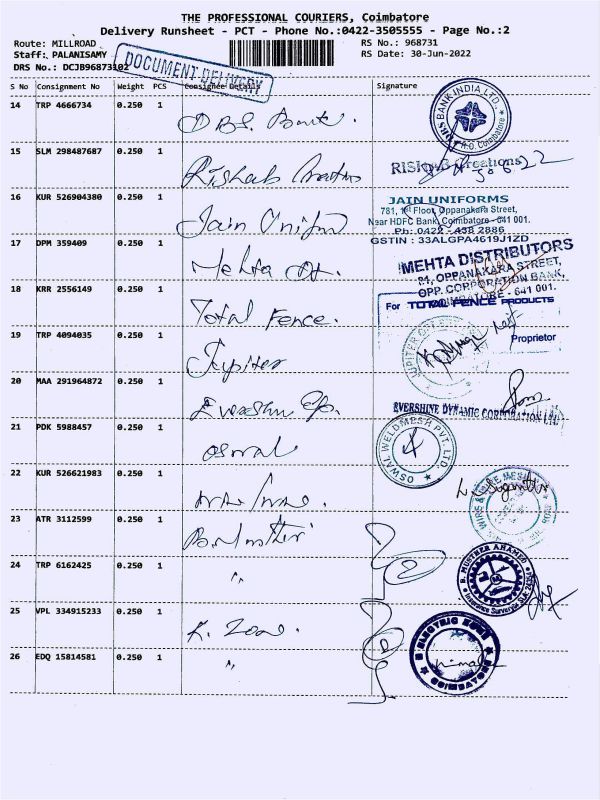 THE PROFESSIONAL COURIERS, Coimbatore
Delivery Runsheet - PCT - Phone No.:0422-3505555 - Page No.:2
Route: MILLROAD
RS No.: 968731
Staff: PALANISAMY
RS Date: 30-Jun-2022
DRS No.: DCJB96873102
DOCUMENT DELIVERY
S No Consignment No Weight PCS Consignee Details Signature
14 TRP 4666734 0.250 1 DBS. Bank.
BANK INDIA LTD.,
R.O. Coimbatore
15 SLM 298487687 0.250 1 Rishab Creations
Creations
16 KUR 526904380 0.250 1 Jain Uniform
JAIN UNIFORMS
781, 1st Floor, Oppanakara Street,
Near HDFC Bank, Coimbatore - 641 001.
Ph: 0422 - 438 2886
GSTIN : 33ALGPA4619J1ZD
17 DPM 359409 0.250 1 Mehta Dt.
MEHTA DISTRIBUTORS
OPPANAKARA STREET,
OPP. CORPORATION BANK,
COIMBATORE - 641 001.
18 KRR 2556149 0.250 1 Total Fence.
For TOTAL FENCE PRODUCTS
Proprietor
19 TRP 4094035 0.250 1 Jupiter
JUPITER
20 MAA 291964872 0.250 1
EVERSHINE DYNAMIC CORPORATION
21 PDK 5988457 0.250 1 Oswal
OSWAL WELDMESH PVT. LTD.
22 KUR 526621983 0.250 1
WIRE & WIRE MESH
23 ATR 3112599 0.250 1
24 TRP 6162425 0.250 1 "
B. MUSTHER AHAMED
Insurance Surveyor
25 VPL 334915233 0.250 1 K. Zone.
ELECTRIC ZONE
COIMBATORE
26 EDQ 15814581 0.250 1 "